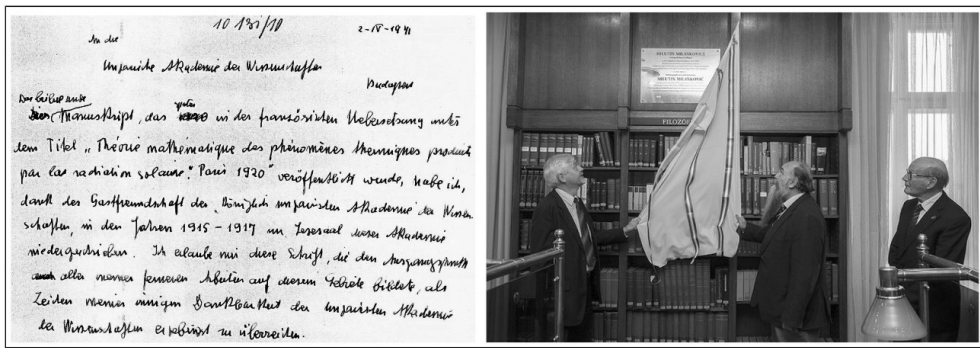 10 131/10
2-IV-1941
An die
Ungarische Akademie der Wissenschaften
Budapest
Das beiliegende
Manuskript, das später in der französischen Uebersetzung unter
dem Titel „Théorie mathématique des phénomènes thermiques produits
par la radiation solaire." Paris 1920" veröffentlicht wurde, habe ich,
dank der Gastfreundschaft der „Königlich ungarischen Akademie der Wissen-
schaften, in den Jahren 1915 – 1917 im Lesesaal dieser Akademie
niedergeschrieben. Ich erlaube mir diese Schrift, die den Ausgangspunkt
aller meiner ferneren Arbeiten auf diesem Gebiete bildete, als
Zeichen meiner innigen Dankbarkeit der ungarischen Akademie
der Wissenschaften ergebenst zu überreichen.
MILUTIN MILANKOVIĆ
FILOZÓF